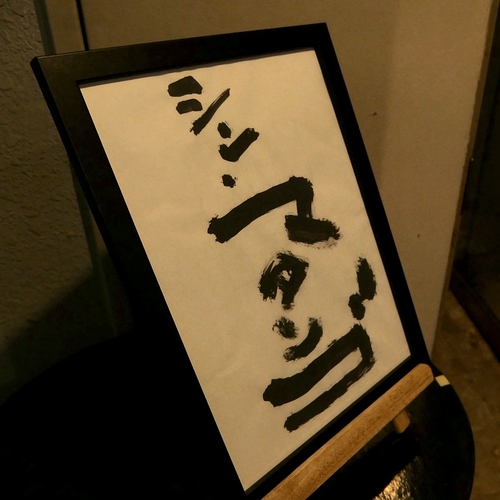 シン・マタンゴ